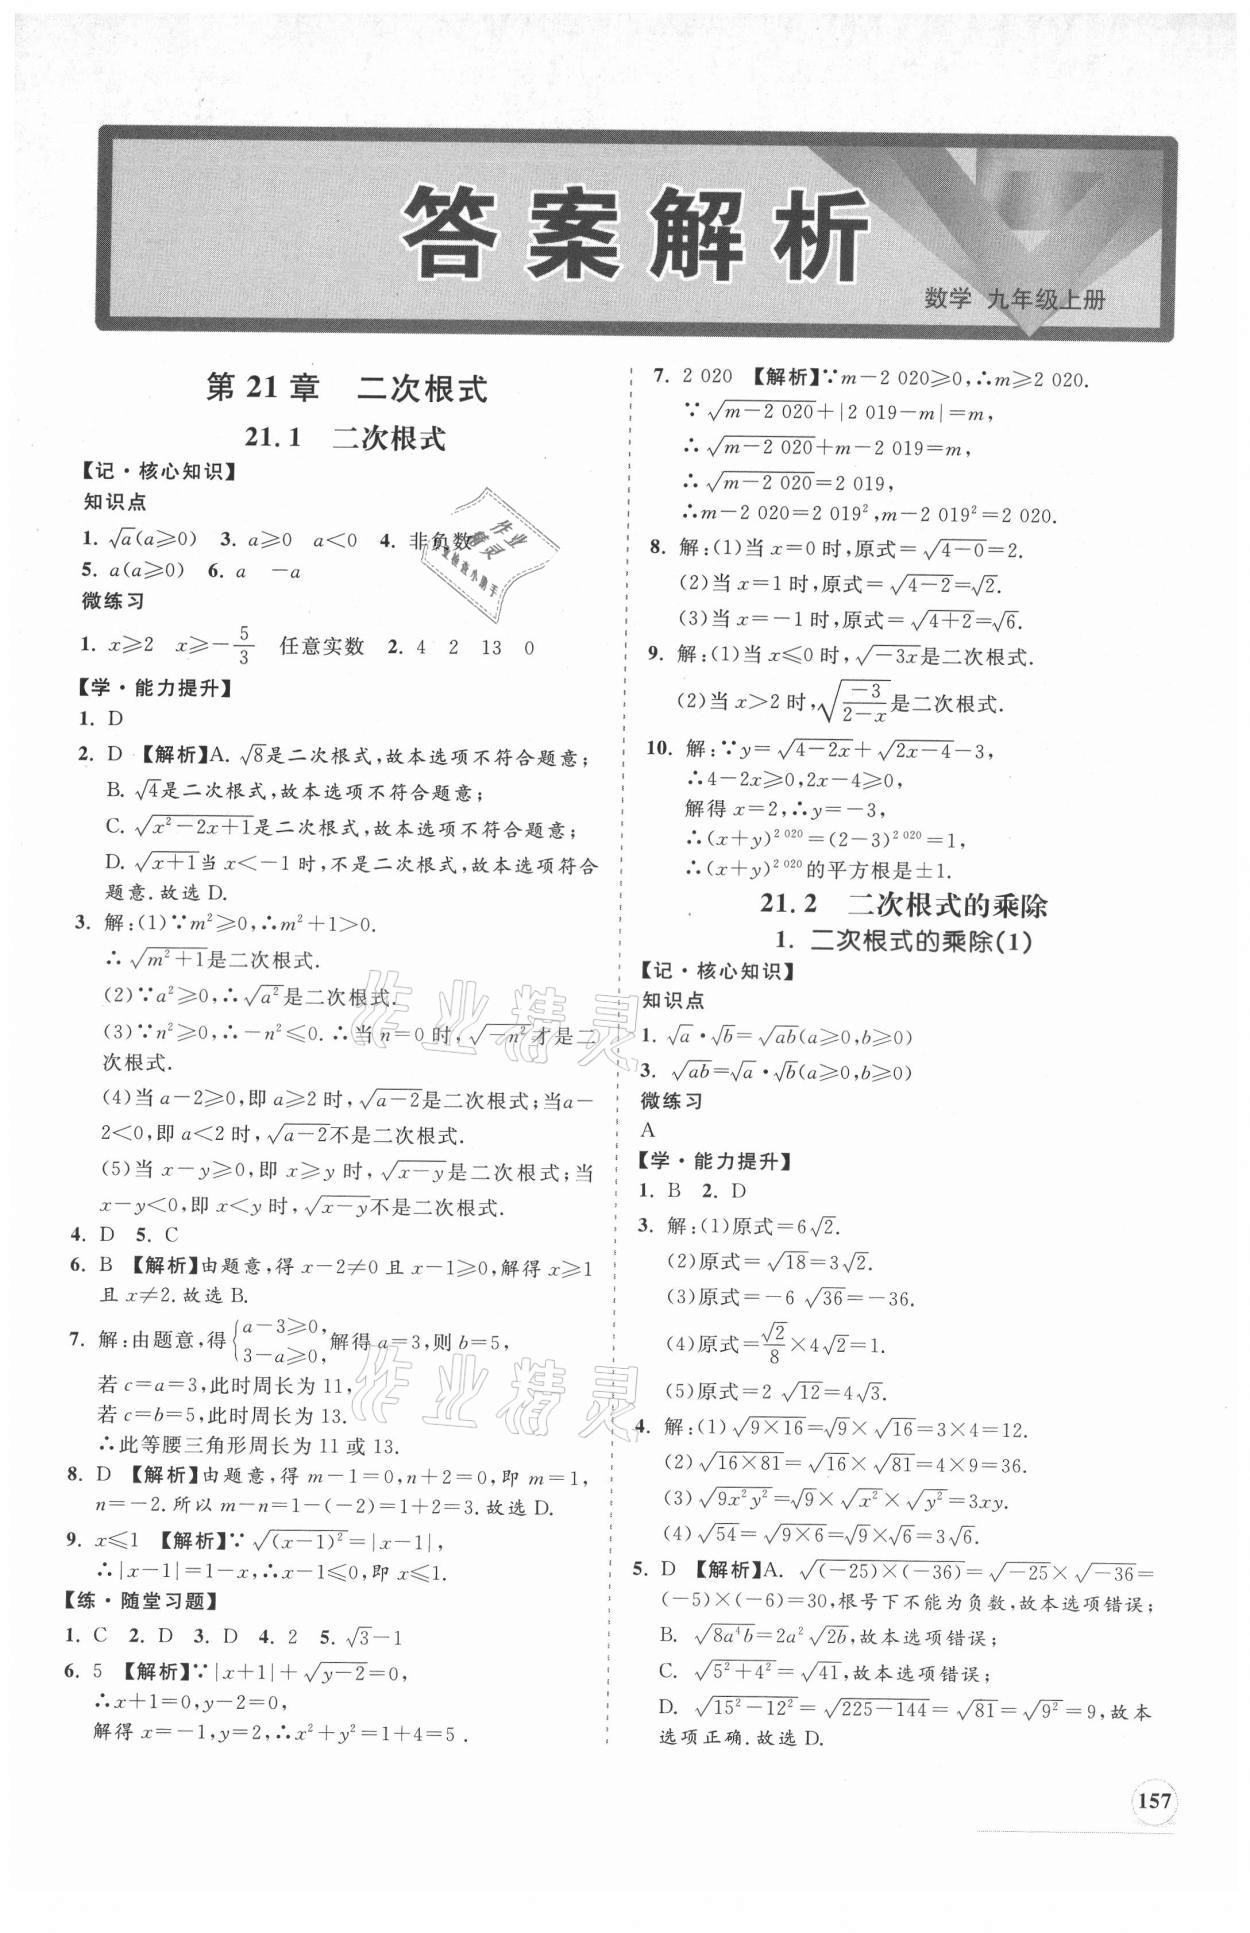 答案解析
数学 九年级上册
第 21 章 二次根式
21.1 二次根式
【记·核心知识】
知识点
1. √a(a≥0) 3. a≥0 a<0 4. 非负数
5. a(a≥0) 6. a -a
微练习
1. x≥2 x≥-5/3 任意实数 2. 4 2 13 0
【学·能力提升】
1. D
2. D 【解析】A. √8是二次根式,故本选项不符合题意;
B. √4是二次根式,故本选项不符合题意;
C. √(x²-2x+1)是二次根式,故本选项不符合题意;
D. √(x+1)当 x<-1 时,不是二次根式,故本选项符合
题意.故选 D.
3. 解:(1)∵m²≥0,∴m²+1>0.
∴√(m²+1)是二次根式.
(2)∵a²≥0,∴√(a²)是二次根式.
(3)∵n²≥0,∴-n²≤0.∴当 n=0 时,√(-n²)才是二
次根式.
(4)当 a-2≥0,即 a≥2 时,√(a-2)是二次根式;当a-
2<0,即 a<2 时,√(a-2)不是二次根式.
(5)当 x-y≥0,即 x≥y 时,√(x-y)是二次根式;当
x-y<0,即 x<y 时,√(x-y)不是二次根式.
4. D 5. C
6. B 【解析】由题意,得 x-2≠0 且 x-1≥0,解得 x≥1
且 x≠2.故选 B.
7. 解:由题意,得{a-3≥0, 3-a≥0,解得 a=3,则 b=5,
若 c=a=3,此时周长为 11,
若 c=b=5,此时周长为 13.
∴此等腰三角形周长为 11 或 13.
8. D 【解析】由题意,得 m-1=0,n+2=0,即 m=1,
n=-2.所以 m-n=1-(-2)=1+2=3.故选 D.
9. x≤1 【解析】∵√((x-1)²)=|x-1|,
∴|x-1|=1-x,∴x-1≤0,即 x≤1.
【练·随堂习题】
1. C 2. D 3. D 4. 2 5. √3-1
6. 5 【解析】∵|x+1|+√(y-2)=0,
∴x+1=0,y-2=0,
解得 x=-1,y=2,∴x²+y²=1+4=5.
7. 2 020 【解析】∵m-2 020≥0,∴m≥2 020.
∵√(m-2 020)+|2 019-m|=m,
∴√(m-2 020)+m-2 019=m,
∴√(m-2 020)=2 019,
∴m-2 020=2 019²,m-2 019²=2 020.
8. 解:(1)当 x=0 时,原式=√(4-0)=2.
(2)当 x=1 时,原式=√(4-2)=√2.
(3)当 x=-1 时,原式=√(4+2)=√6.
9. 解:(1)当 x≤0 时,√(-3x)是二次根式.
(2)当 x>2 时,√(-3/(2-x))是二次根式.
10. 解:∵y=√(4-2x)+√(2x-4)-3,
∴4-2x≥0,2x-4≥0,
解得 x=2,∴y=-3,
∴(x+y)^2 020=(2-3)^2 020=1,
∴(x+y)^2 020的平方根是±1.
21.2 二次根式的乘除
1. 二次根式的乘除(1)
【记·核心知识】
知识点
1. √a·√b=√(ab)(a≥0,b≥0)
3. √(ab)=√a·√b(a≥0,b≥0)
微练习
A
【学·能力提升】
1. B 2. D
3. 解:(1)原式=6√2.
(2)原式=√18=3√2.
(3)原式=-6√36=-36.
(4)原式=√2/8×4√2=1.
(5)原式=2√12=4√3.
4. 解:(1)√(9×16)=√9×√16=3×4=12.
(2)√(16×81)=√16×√81=4×9=36.
(3)√(9x²y²)=√9×√(x²)×√(y²)=3xy.
(4)√54=√(9×6)=√9×√6=3√6.
5. D 【解析】A. √((-25)×(-36))=√(-25)×√(-36)=
(-5)×(-6)=30,根号下不能为负数,故本选项错误;
B. √(8a⁴b)=2a²√(2b),故本选项错误;
C. √(5²+4²)=√41,故本选项错误;
D. √(15²-12²)=√(225-144)=√81=√(9²)=9,故本
选项正确.故选 D.
157
作业精灵
作业精灵
作业
精灵